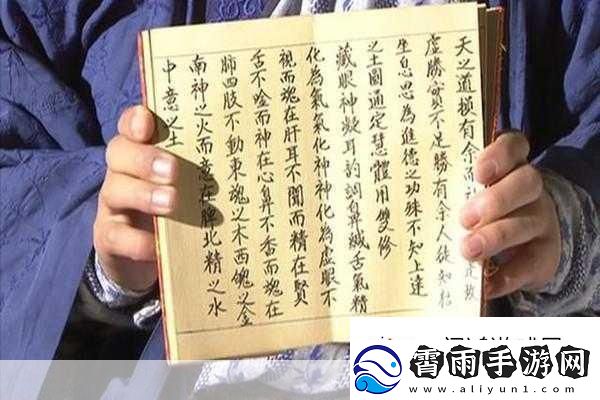 天之道损有余而是故
虛勝實不足勝有余人徒知枯
坐息思為進德之功殊不知上達
之士圆通定慧體用雙修
藏眼神凝耳韵調鼻緘舌氣精
化為氣氣化神神化為虛眼不
視而魂在肝耳不聞而精在賢
舌不唫而神在心鼻不香而魂在
肺四肢不動東魂之木西魄之金
南神之火而意在脾北精之水
中意之土
霄雨手游网
www.aliyun1.com